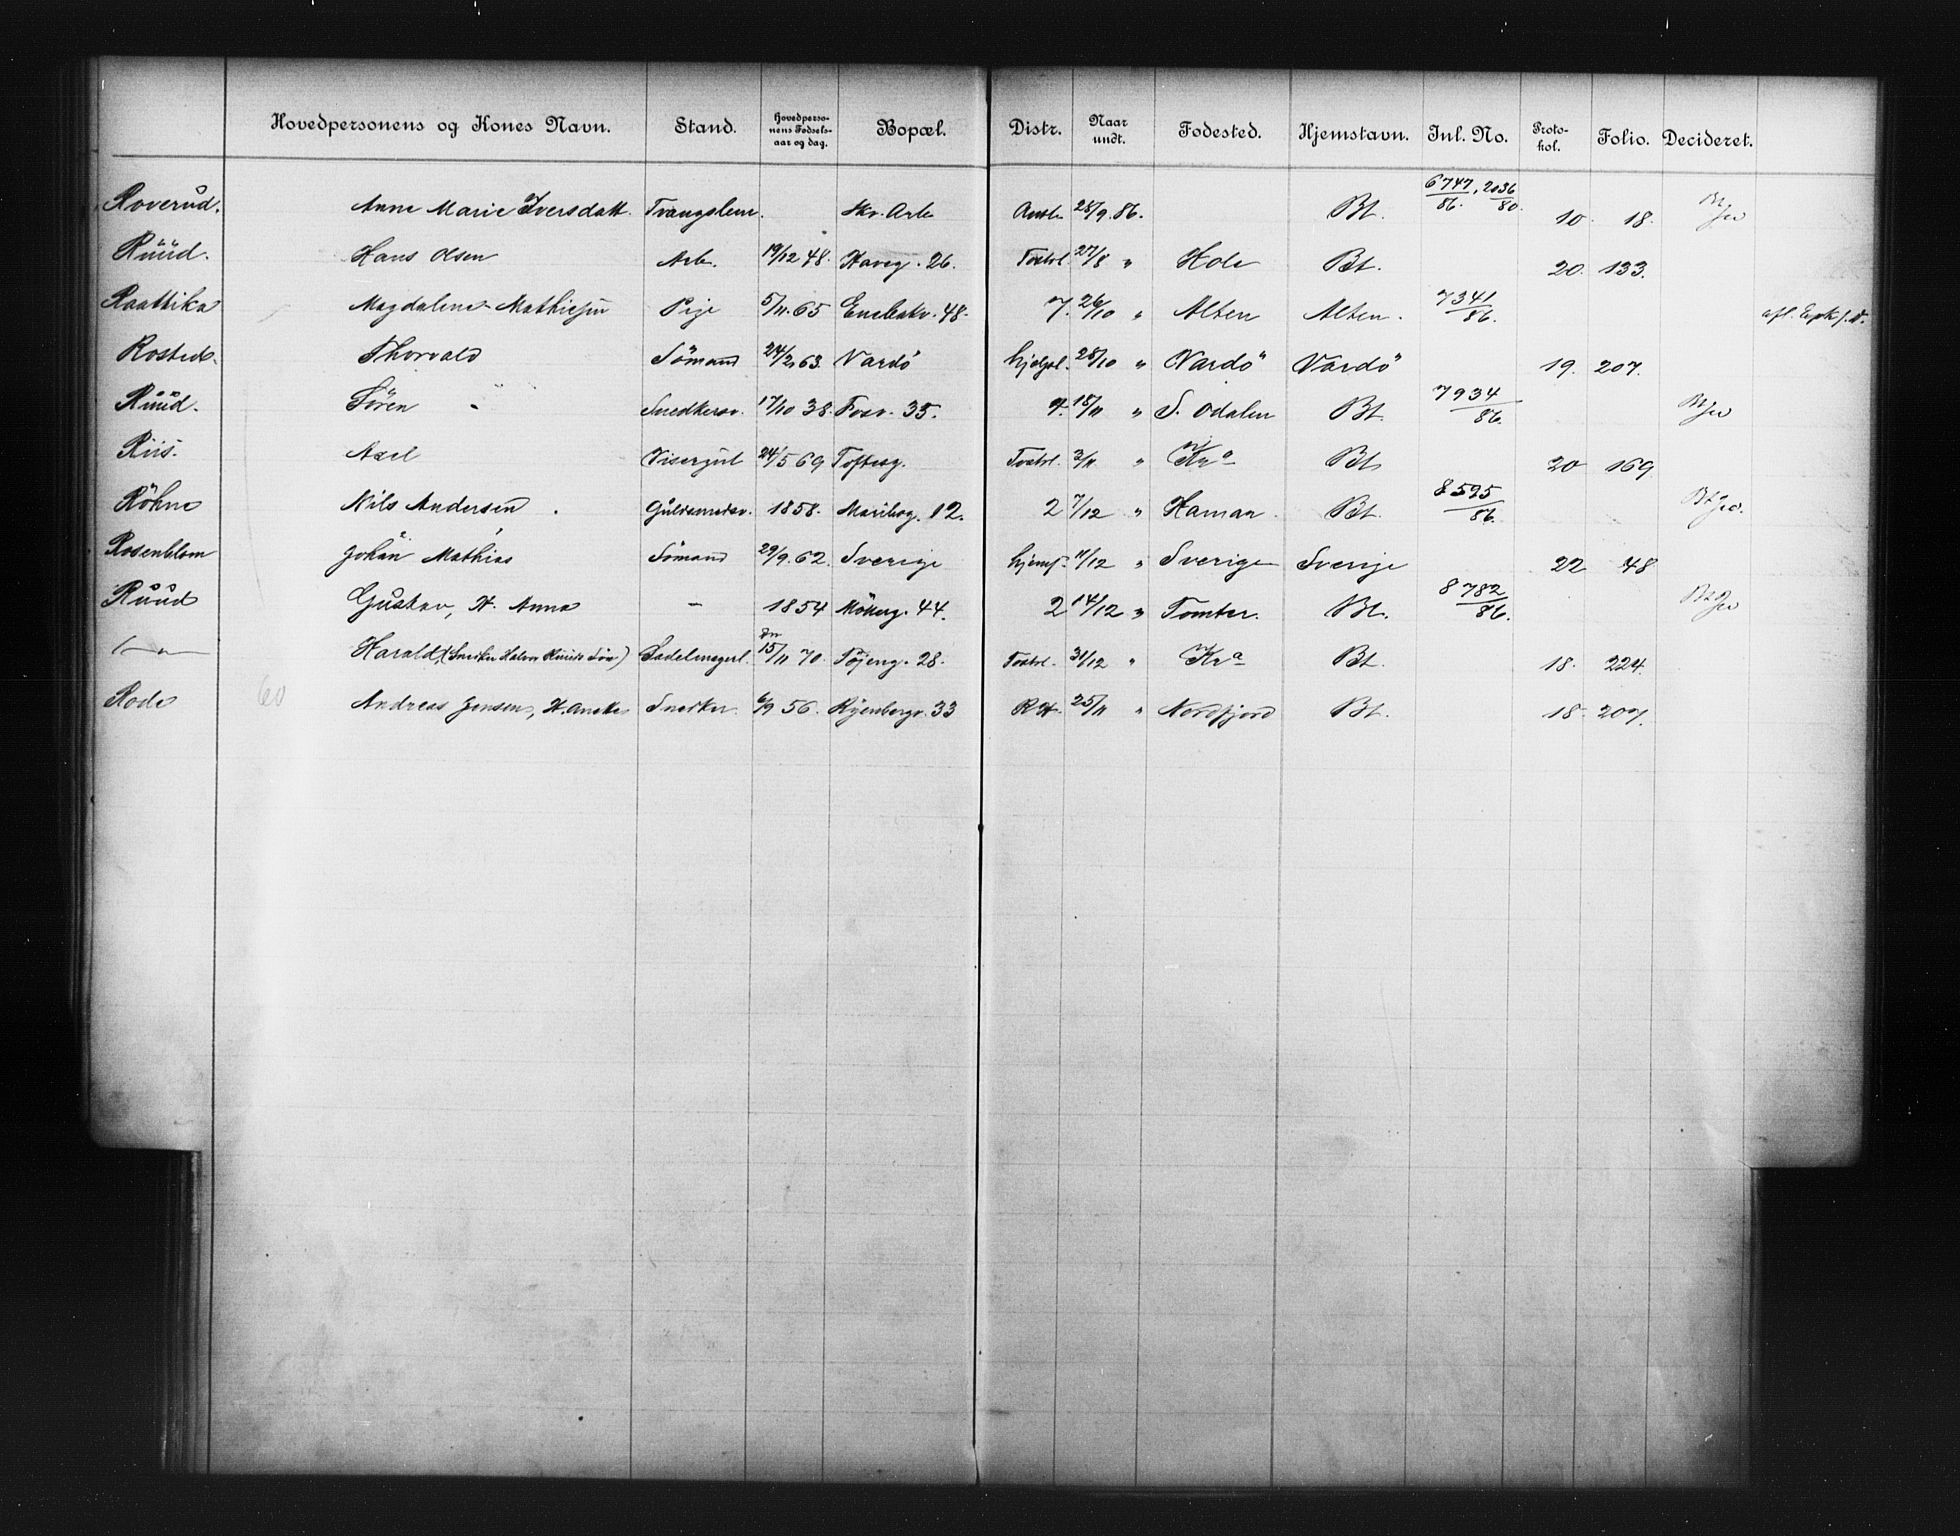 Hovedpersonens og Kones Navn. Stand. Hovedpersonens Fødselsaar og dag. Bopæl. Distr. Naar undt. Fødested. Hjemstavn. Inl. No. Protokol. Folio. Decideret.
Roverud. Anne Marie Iversdatt. Tvangslem. Skv. Arb Anst. 28/9. 86. Bt. 6747/86. 2036/80. 10 18.
Ruud. Hans Olsen Arb. 19/12 48. Haveg. 26. Tostrl. 27/8 " Hole Bt. 20. 133.
Raattika Magdalene Mathiesen Pige 5/11. 65 Enebakv. 48. 7. 26/10 " Alten Alten. 7341/86.
Rosted. Thorvald Sømand 24/2 63. Vardö hjelpl. 25/10 " Vardö Vardö 19. 207.
Ruud. Sören Snedkersv. 17/10 38. Fosv. 35. 7. 18/11 " S. Odalen Bt. 7934/86.
Riis. Axel Visergut 24/5 69 Toftesg. Tostrl. 3/11 " Kra Bt 20 169
Röhne Nils Andersen Guldsmedsv. 1858. Maribog. 12. 2 7/12 " Hamar. Bt. 8595/86.
Rosenblom Johan Mathias Sömand 29/9. 62. Sverige hjemf. 11/12 " Sverige Sverige 22 48
Ruud Gustav, H. Anna — 1854 Möllerg. 44. 2 14/12 " Tomter. Bt. 8782/86.
—"— Harald (Snedker Halvor Ruuds Sön) Sadelmagerl. 15/11 70. Töjeng. 28. Tostrl. 31/12 " Kra Bt. 18. 224.
Rode 60 Andreas Jensen, H. Aneke Snedker. 6/9 56. Ryenbergv. 33 RH. 25/11 " Nordfjord Bt. 18. 207.